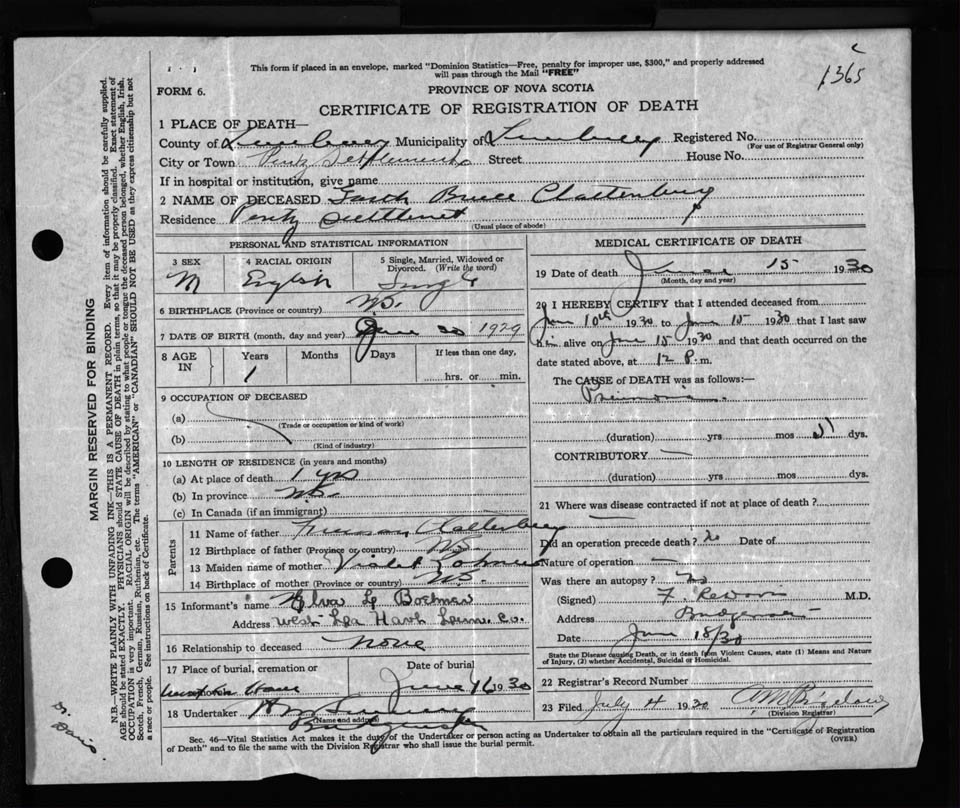 1365
This form if placed in an envelope, marked "Dominion Statistics—Free, penalty for improper use, $300," and properly addressed
will pass through the Mail "FREE"
FORM 6.
PROVINCE OF NOVA SCOTIA
CERTIFICATE OF REGISTRATION OF DEATH
1 PLACE OF DEATH—
County of Lunenburg Municipality of Lunenburg Registered No.
(For use of Registrar General only)
City or Town Pentz Settlement Street House No.
If in hospital or institution, give name
2 NAME OF DECEASED Bruce
Residence Pentz Settlement
(Usual place of abode)
PERSONAL AND STATISTICAL INFORMATION
3 SEX 4 RACIAL ORIGIN 5 Single, Married, Widowed or
Divorced. (Write the word)
M English Single
6 BIRTHPLACE (Province or country) N.S.
7 DATE OF BIRTH (month, day and year) 1929
8 AGE IN Years Months Days If less than one day,
1
hrs. or min.
9 OCCUPATION OF DECEASED
(a)
(Trade or occupation or kind of work)
(b)
(Kind of industry)
10 LENGTH OF RESIDENCE (in years and months)
(a) At place of death 1 yrs
(b) In province N.S.
(c) In Canada (if an immigrant)
Parents
11 Name of father
12 Birthplace of father (Province or country) N.S.
13 Maiden name of mother Violet
14 Birthplace of mother (Province or country) N.S.
15 Informant's name
Address West Co.
16 Relationship to deceased None
17 Place of burial, cremation or Date of burial
June 16 1930
18 Undertaker
(Name and address)
MEDICAL CERTIFICATE OF DEATH
19 Date of death June 15 1930
(Month, day and year)
20 I HEREBY CERTIFY that I attended deceased from
June 10th 1930 to June 15 1930 that I last saw
him alive on June 15 1930 and that death occurred on the
date stated above, at 12 P.m.
The CAUSE of DEATH was as follows:
Pneumonia
(duration) yrs mos dys.
CONTRIBUTORY —
(duration) yrs. mos. dys.
21 Where was disease contracted if not at place of death?
—
Did an operation precede death? no Date of
Nature of operation —
Was there an autopsy? no
(Signed) M.D.
Address Bridgewater
Date June 18/30
State the Disease causing Death, or in death from Violent Causes, state (1) Means and Nature
of Injury, (2) whether Accidental, Suicidal or Homicidal.
22 Registrar's Record Number
23 Filed July 4 1930
(Division Registrar)
Sec. 46—Vital Statistics Act makes it the duty of the Undertaker or person acting as Undertaker to obtain all the particulars required in the "Certificate of Registration
of Death" and to file the same with the Division Registrar who shall issue the burial permit.
(OVER)
MARGIN RESERVED FOR BINDING
N.B.—WRITE PLAINLY WITH UNFADING INK—THIS IS A PERMANENT RECORD. Every item of information should be carefully supplied.
AGE should be stated EXACTLY. PHYSICIANS should STATE CAUSE OF DEATH in plain terms, so that it may be properly classified. Exact statement of
OCCUPATION is very important. RACIAL ORIGIN will be described by stating to what people or tongue the deceased person belonged, whether English, Irish,
Scotch, French, German, Russian, Ruthenian, etc. The terms "AMERICAN" or "CANADIAN" SHOULD NOT BE USED as they express citizenship but not
a race or people. See instructions on back of Certificate.
Davis